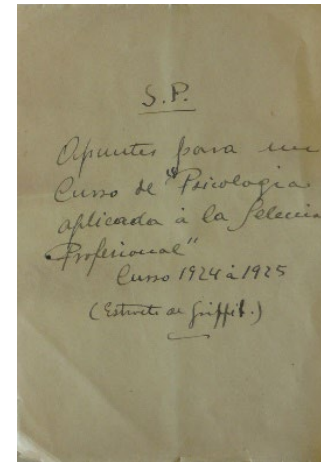 S. P.
Apuntes para un
Curso de "Psicologia
aplicada à la Selecció
Profesional"
Curso 1924 à 1925
(Extracto de Griffit.)